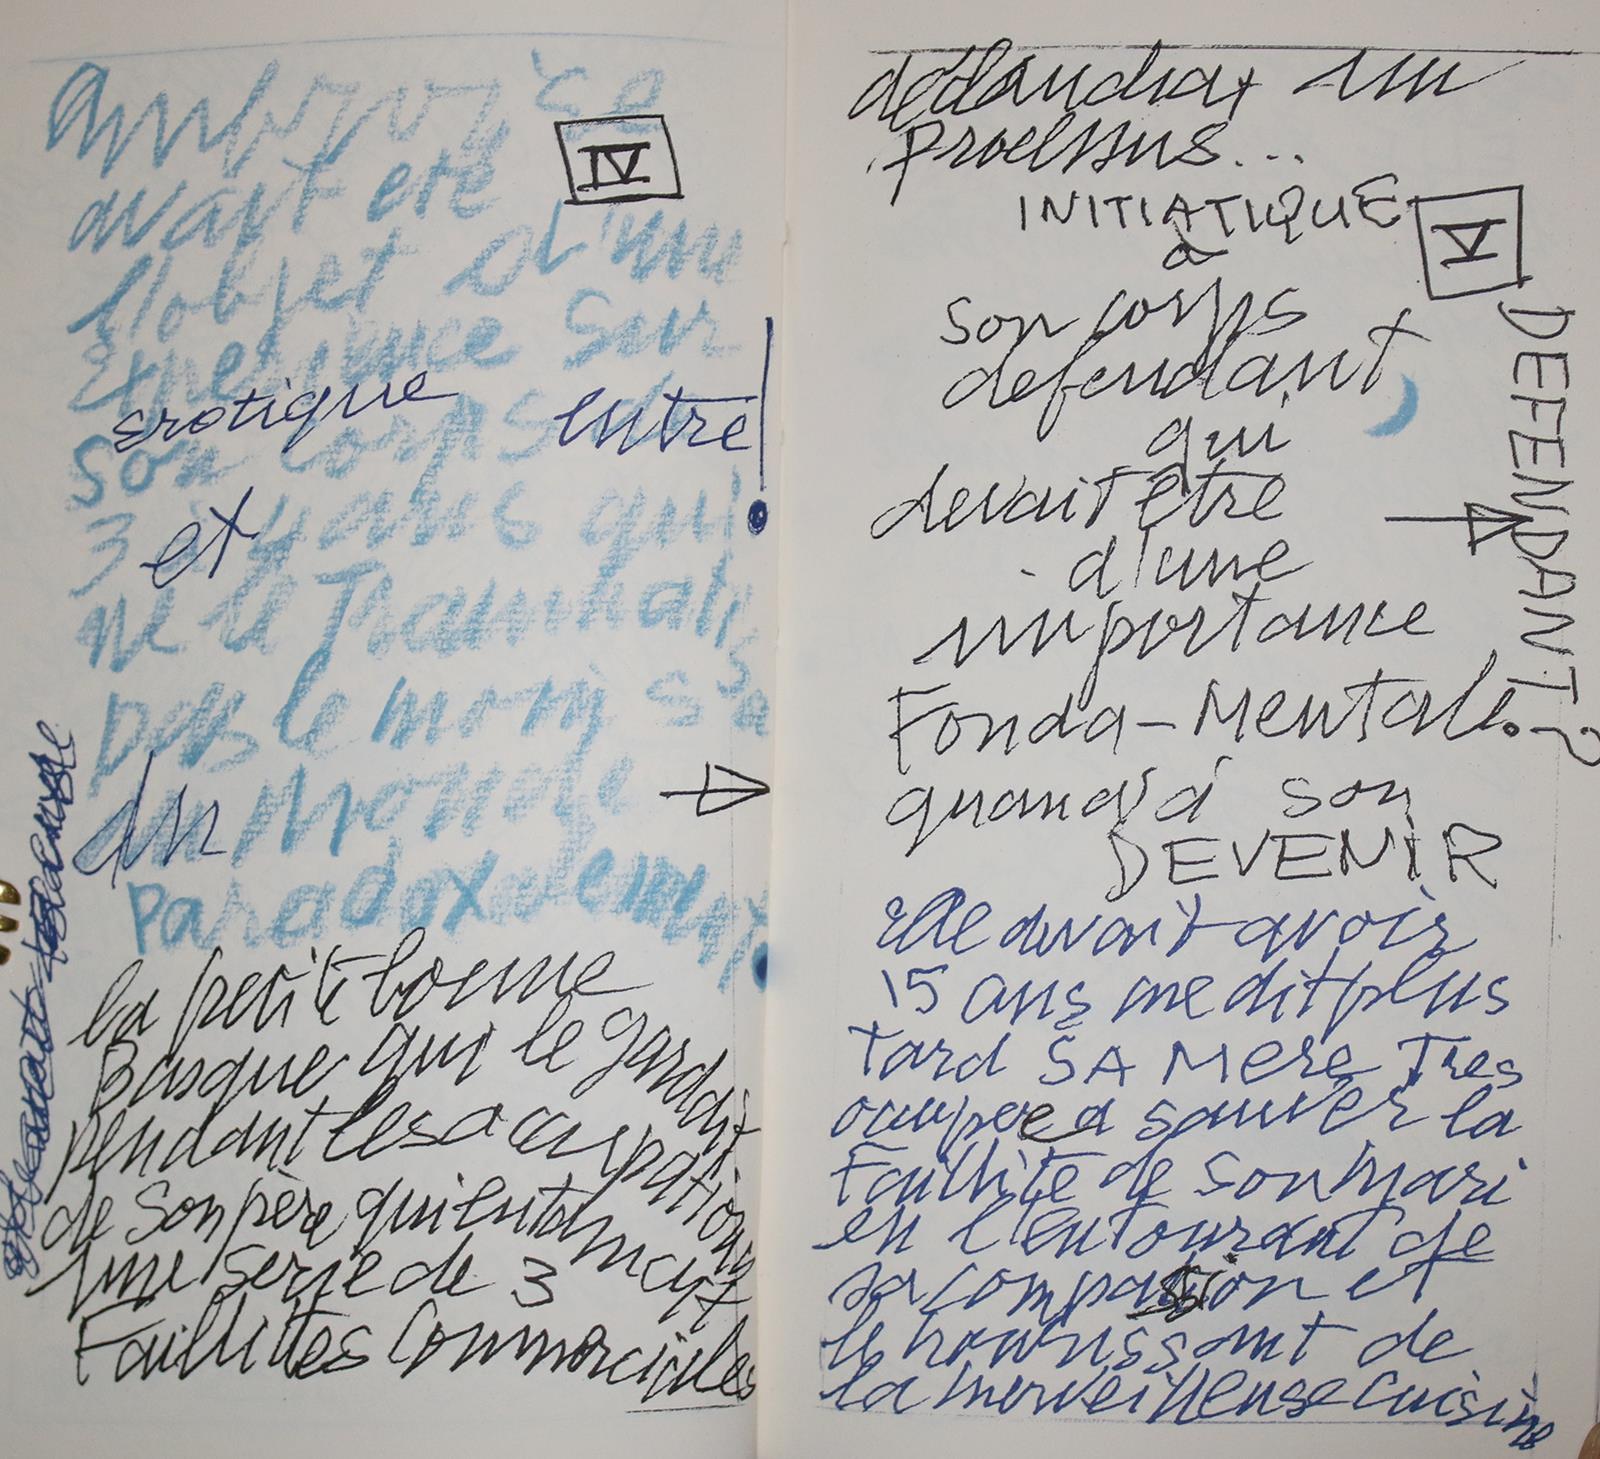 Ambroise
IV
ayant été
l'objet d'une
Expérience sur
erotique entre
son corps
3 et 4 ans qui
ne le Traumatisa
pas le moins
du Monde
Paradoxalement
la petite bonne
Basque qui le gardait
pendant les occupations
de son père qui entamait
une serie de 3
Faillites Commerciales
déclancha un
processus...
INITIATIQUE
V
à
son corps
defendant,
DEFENDANT?
qui
devait être
d'une
importance
Fonda-Mentale.
quand à son
DEVENIR
Elle devait avoir
15 ans me dit plus
Tard SA Mere Tres
occupée a sauver la
Faillite de son Mari
en l'entourant de
sa compassion et
le nourrissant de
la merveilleuse cuisine